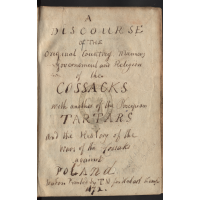 A
DISCOURSE
OF THE
Original Countrey Manners
Government and Religion
of the
COSSACKS
with another of the Precopian
TARTARS
and the History of the
wars of the Cossaks
against
POLAND.
London Printed by T.N. for Hobart Kemp
1672.